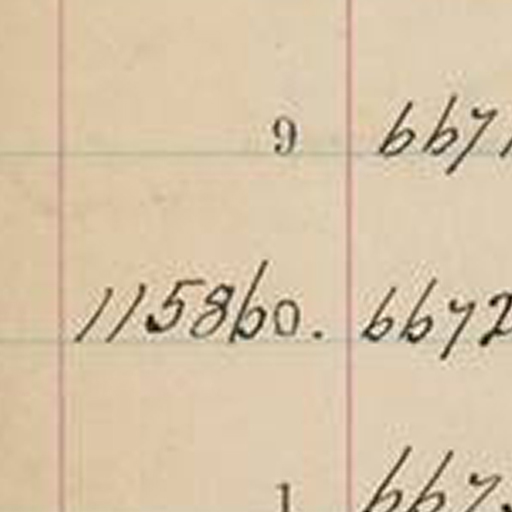 9 6671
115860. 6672
1 667